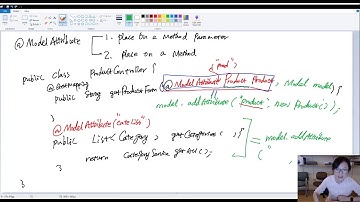 @ ModelAttribute
1. Place on a Method Parameter
2. Place on a Method
("prod")
public class ProductController {
@Getmapping
public String getProductForm (@ModelAttribute Product Product, Model model) {
model.addAttribute ("product", new Product());
}
@ModelAttribute("cateList")
public List<Category> getCategories () {
return CategoryService.getAll();
}
= model.addAttribute
("
}